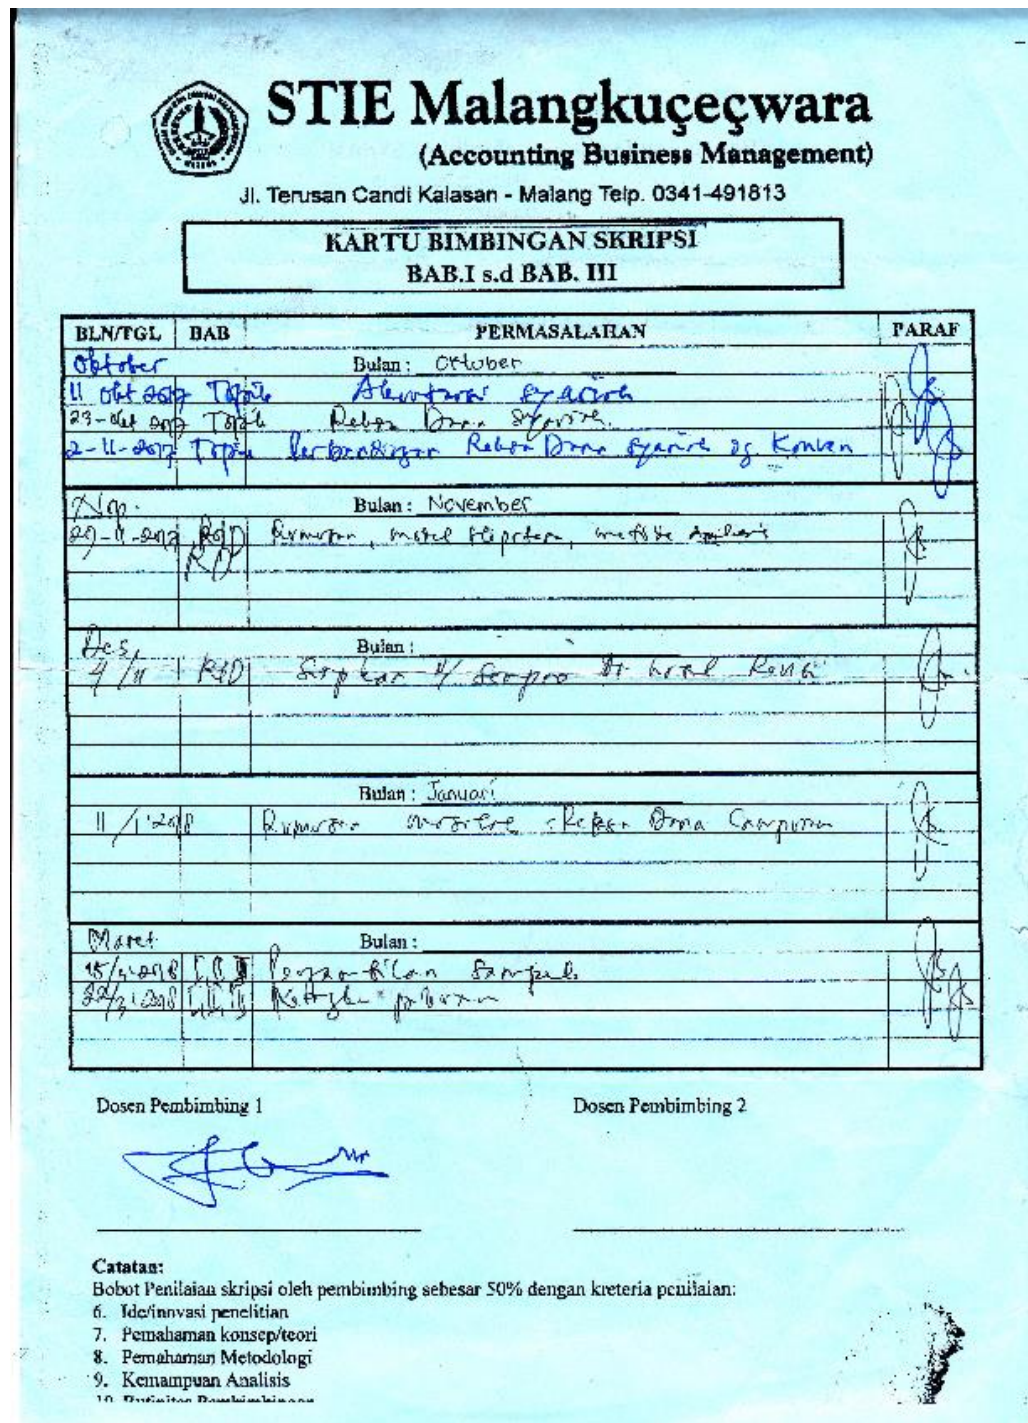 STIE Malangkuçeçwara
(Accounting Business Management)
Jl. Terusan Candi Kalasan - Malang Telp. 0341-491813
KARTU BIMBINGAN SKRIPSI
BAB.I s.d BAB. III
BLN/TGL BAB PERMASALAHAN PARAF
Oktober Bulan : Oktober
11 okt 2017 Topik Akuntansi Syariah
23-okt 2017 Topik Reksa Dana Syariah
2-11-2017 Topik Perbandingan Reksa Dana Syariah dg Konven
Nop. Bulan : November
29-11-2017 Rumusan, metode
Des, Bulan :
4/11 Siapkan
Bulan : Januari
11/1'2018 Rumusan Reksa Dana Campuran
Maret Bulan :
15/3'2018 I, II, III Pengambilan Sampel
22/3'2018 I, II, III
Dosen Pembimbing 1 Dosen Pembimbing 2
Catatan:
Bobot Penilaian skripsi oleh pembimbing sebesar 50% dengan kreteria penilaian:
6. Ide/innvasi penelitian
7. Pemahaman konsep/teori
8. Pemahaman Metodologi
9. Kemampuan Analisis
10. Rutinitas Pembimbingan